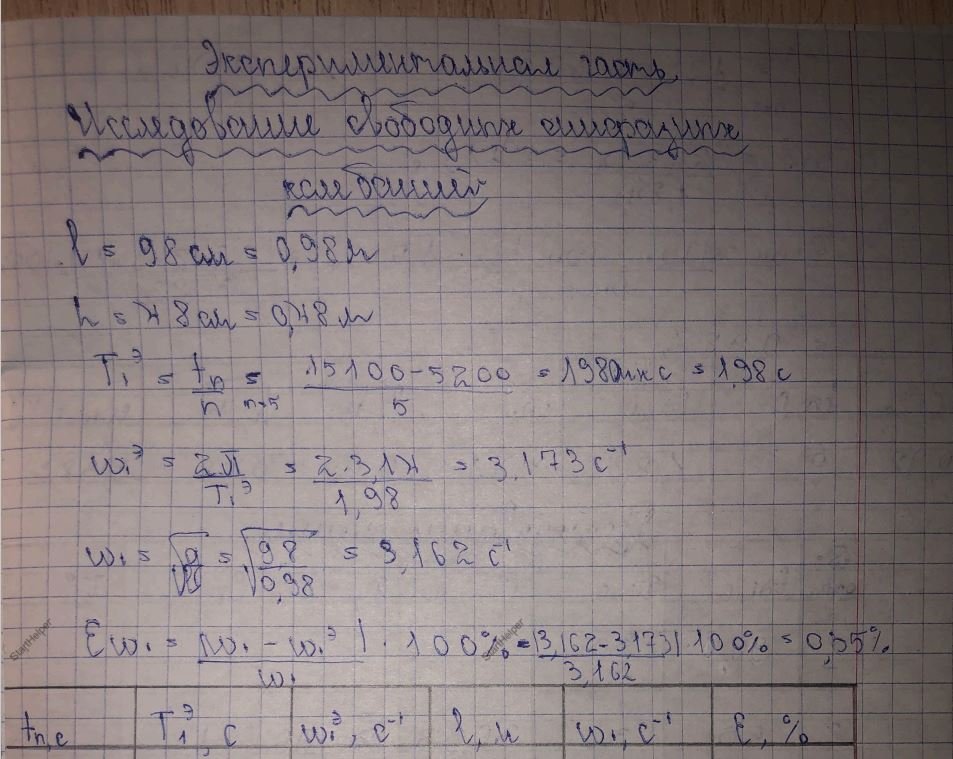 Экспериментальная часть
Исследование свободных синфазных
колебаний
l = 98 см = 0,98 м
h = 48 см = 0,48 м
T₁ᴲ = tₙ/n = (n=5) (15100-5200)/5 = 1980 мкс = 1,98 с
ω₁ᴲ = 2π/T₁ᴲ = 2·3,14/1,98 = 3,173 с⁻¹
ω₁ = √(g/l) = √(9,8/0,98) = 3,162 с⁻¹
Ɛω₁ = |ω₁ - ω₁ᴲ|/ω₁ · 100% = |3,162-3,173|/3,162 · 100% = 0,35%
StartHelper StartHelper
tₙ, с T₁ᴲ, с ω₁ᴲ, с⁻¹ l, м ω₁, с⁻¹ Ɛ, %